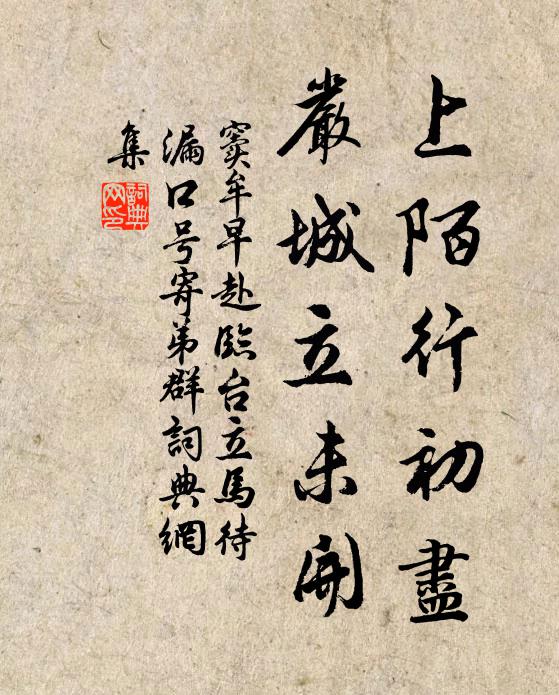 上陌行初盡
嚴城立未開
竇牟早赴臨台立馬待
漏口号寄弟群詞典網
集
詞典網印